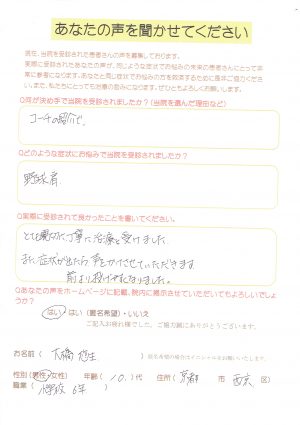 あなたの声を聞かせてください
現在、当院を受診された患者さんの声を募集しております。
実際に受診されたあなたの声が、同じような症状でお悩みの未来の患者さんにとって非
常に参考になります。あなたと同じ症状でお悩みの方を救済するために是非ご協力くださ
い。また、私たちにとっても治療の励みになります。ぜひともよろしくお願いします。
Q何が決め手で当院を受診されましたか？(当院を選んだ理由など)
コーチの紹介で。
Qどのような症状にお悩みで当院を受診されましたか？
野球肩
Q実際に受診されて良かったことを書いてください。
とても親切に丁寧に治療を受けました。
また症状が出たら声をかけさせていただきます
前より投げやすくなりました。
Qあなたの声をホームページに記載、院内に掲示させていただいてもよろしいでしょ
うか？
はい・はい(匿名希望)・いいえ
ご記入お疲れ様でした。ご協力誠にありがとうございます。
お名前(
)匿名希望の場合はイニシャルをお願いいたします。
性別(男性・女性) 年齢(10.)代 住所(京都 市 西京 区)
職業(小学校6年)